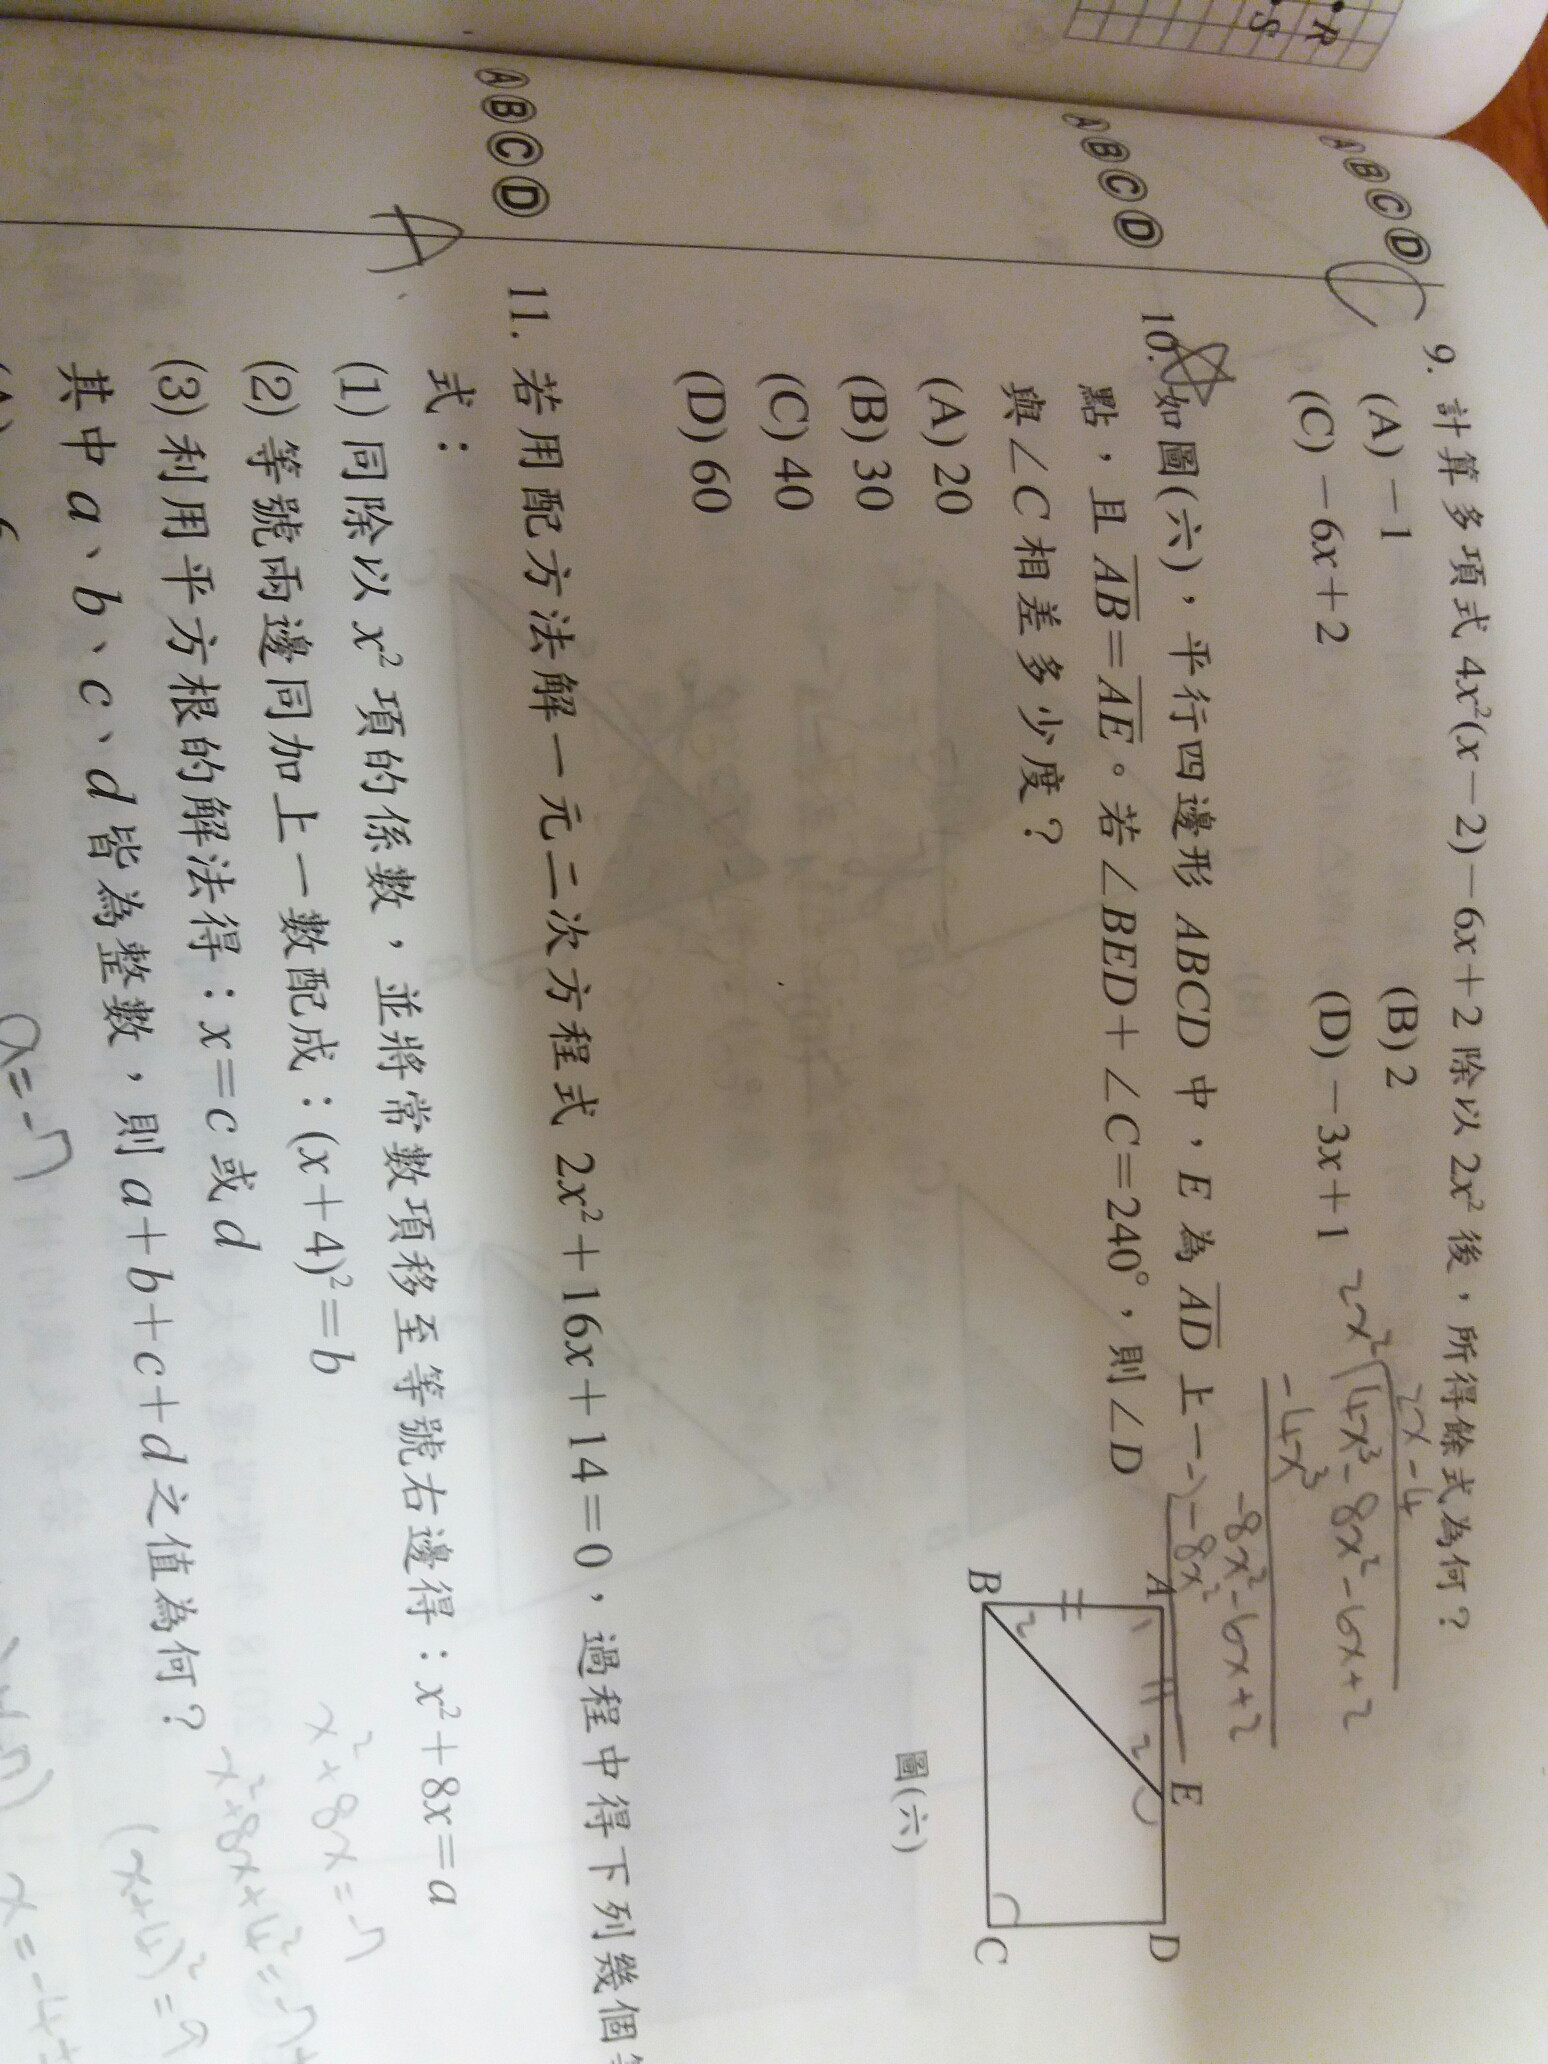 R
S
ⒶⒷⒸⒹ
9. 計算多項式 4x²(x－2)－6x＋2 除以 2x² 後，所得餘式為何？
(A)－1
(B) 2
(C)－6x＋2
(D)－3x＋1
2x-4
2x² 4x³-8x²-6x+2
-4x³
-8x²-6x+2
-)-8x²
ⒶⒷⒸⒹ
10. 如圖(六)，平行四邊形 ABCD 中，E 為 AD 上一
點，且 AB＝AE。若∠BED＋∠C＝240°，則∠D
與∠C 相差多少度？
(A) 20
(B) 30
(C) 40
(D) 60
A
E
D
B
C
1
2
2
圖(六)
ⒶⒷⒸⒹ
A
11. 若用配方法解一元二次方程式 2x²＋16x＋14＝0，過程中得下列幾個等
式：
(1) 同除以 x² 項的係數，並將常數項移至等號右邊得：x²＋8x＝a
(2) 等號兩邊同加上一數配成：(x＋4)²＝b
(3) 利用平方根的解法得：x＝c 或 d
其中 a、b、c、d 皆為整數，則 a＋b＋c＋d 之值為何？
x²+8x=-7
x²+8x+4²=-7+
(x+4)²=9
a=-7
x=-4±